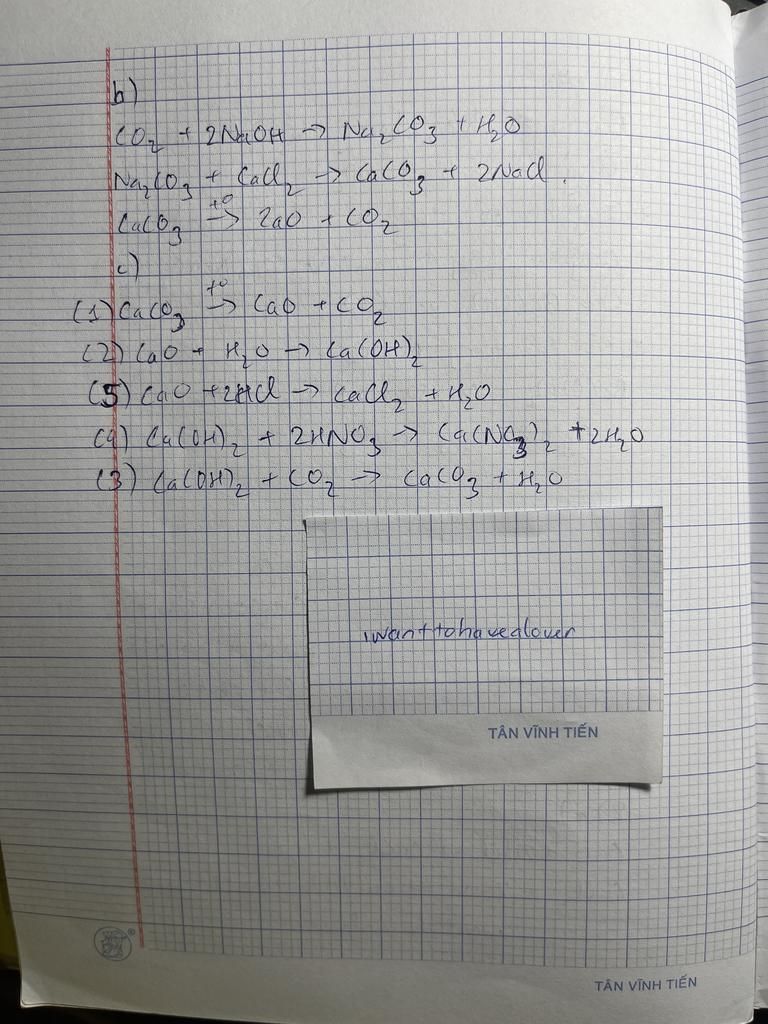 b)
CO₂ + 2NaOH → Na₂CO₃ + H₂O
Na₂CO₃ + CaCl₂ → CaCO₃ + 2NaCl.
CaCO₃ →(t°) 2aO + CO₂
c)
(1) CaCO₃ →(t°) CaO + CO₂
(2) CaO + H₂O → Ca(OH)₂
(5) CaO + 2HCl → CaCl₂ + H₂O
(4) Ca(OH)₂ + 2HNO₃ → Ca(NO₃)₂ + 2H₂O
(3) Ca(OH)₂ + CO₂ → CaCO₃ + H₂O
iwanttohavealover
TÂN VĨNH TIẾN
TÂN VĨNH TIẾN